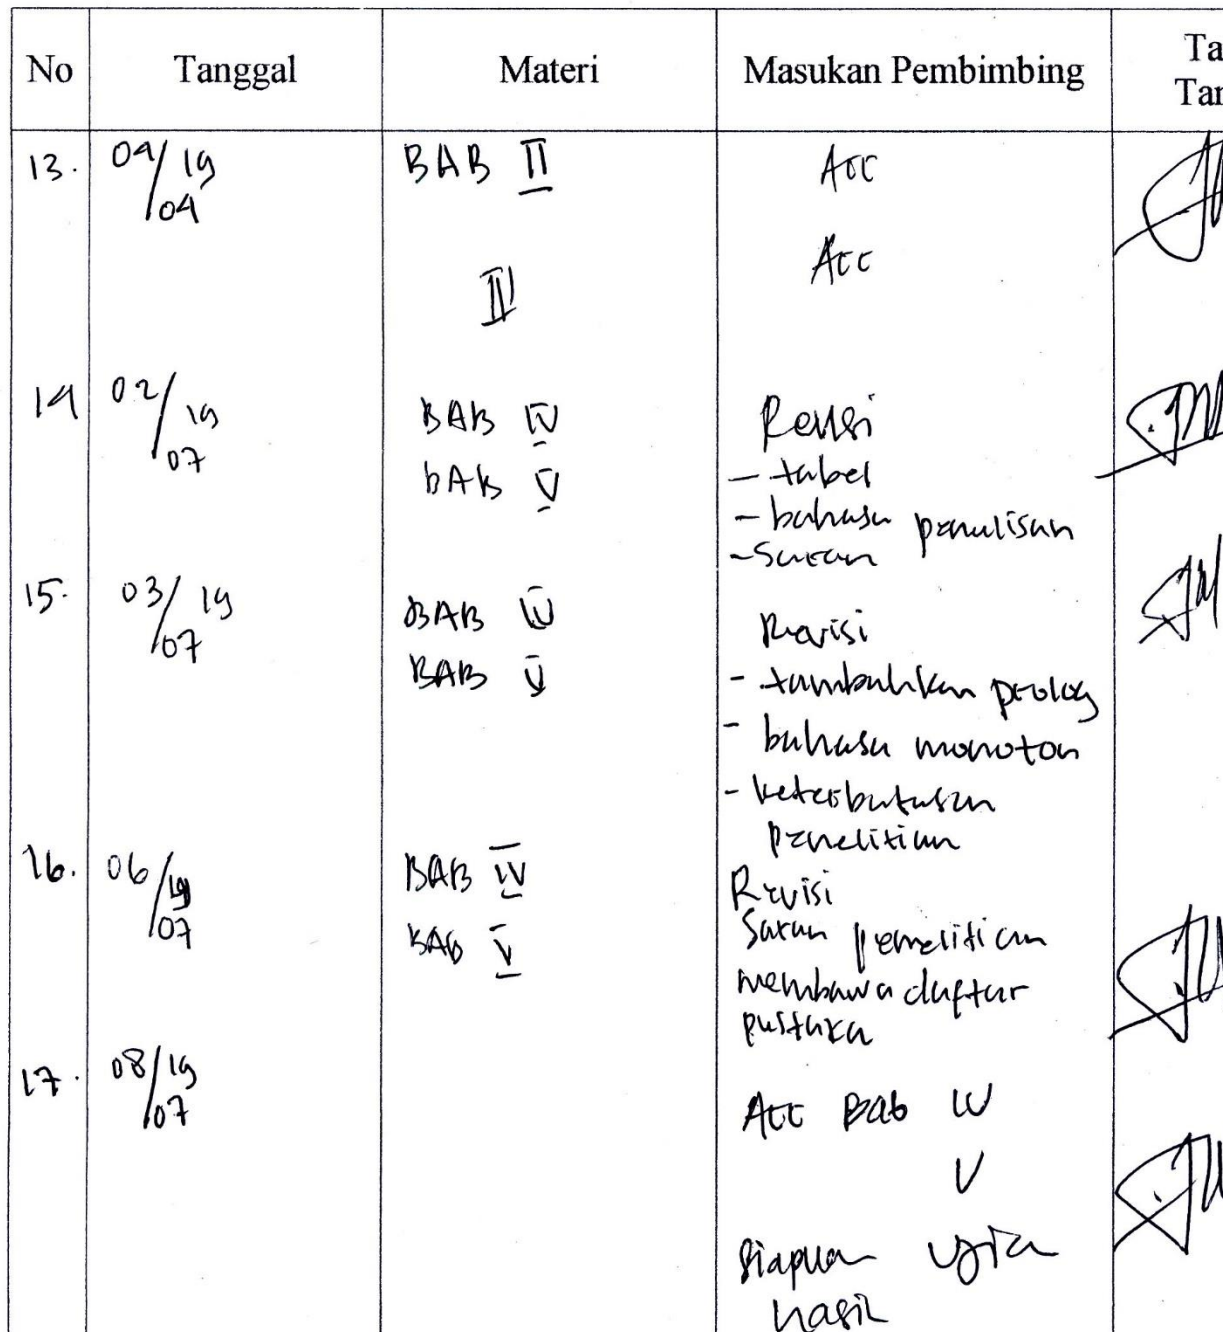 No Tanggal Materi Masukan Pembimbing Ta
Tar
13. 04/19 BAB II Acc
/04
III Acc
14 02/19 BAB IV Revisi
/07 BAB V - tabel
- bahasa penulisan
- Saran
15. 03/19 BAB IV Revisi
/07 BAB V - tambahkan prolog
- bahasa monoton
- keterbatasan
penelitian
16. 06/19 BAB IV Revisi
/07 BAB V Saran penelitian
membawa daftar
pustaka
17. 08/19 Acc Bab IV
/07 V
Siapkan ujian
hasil